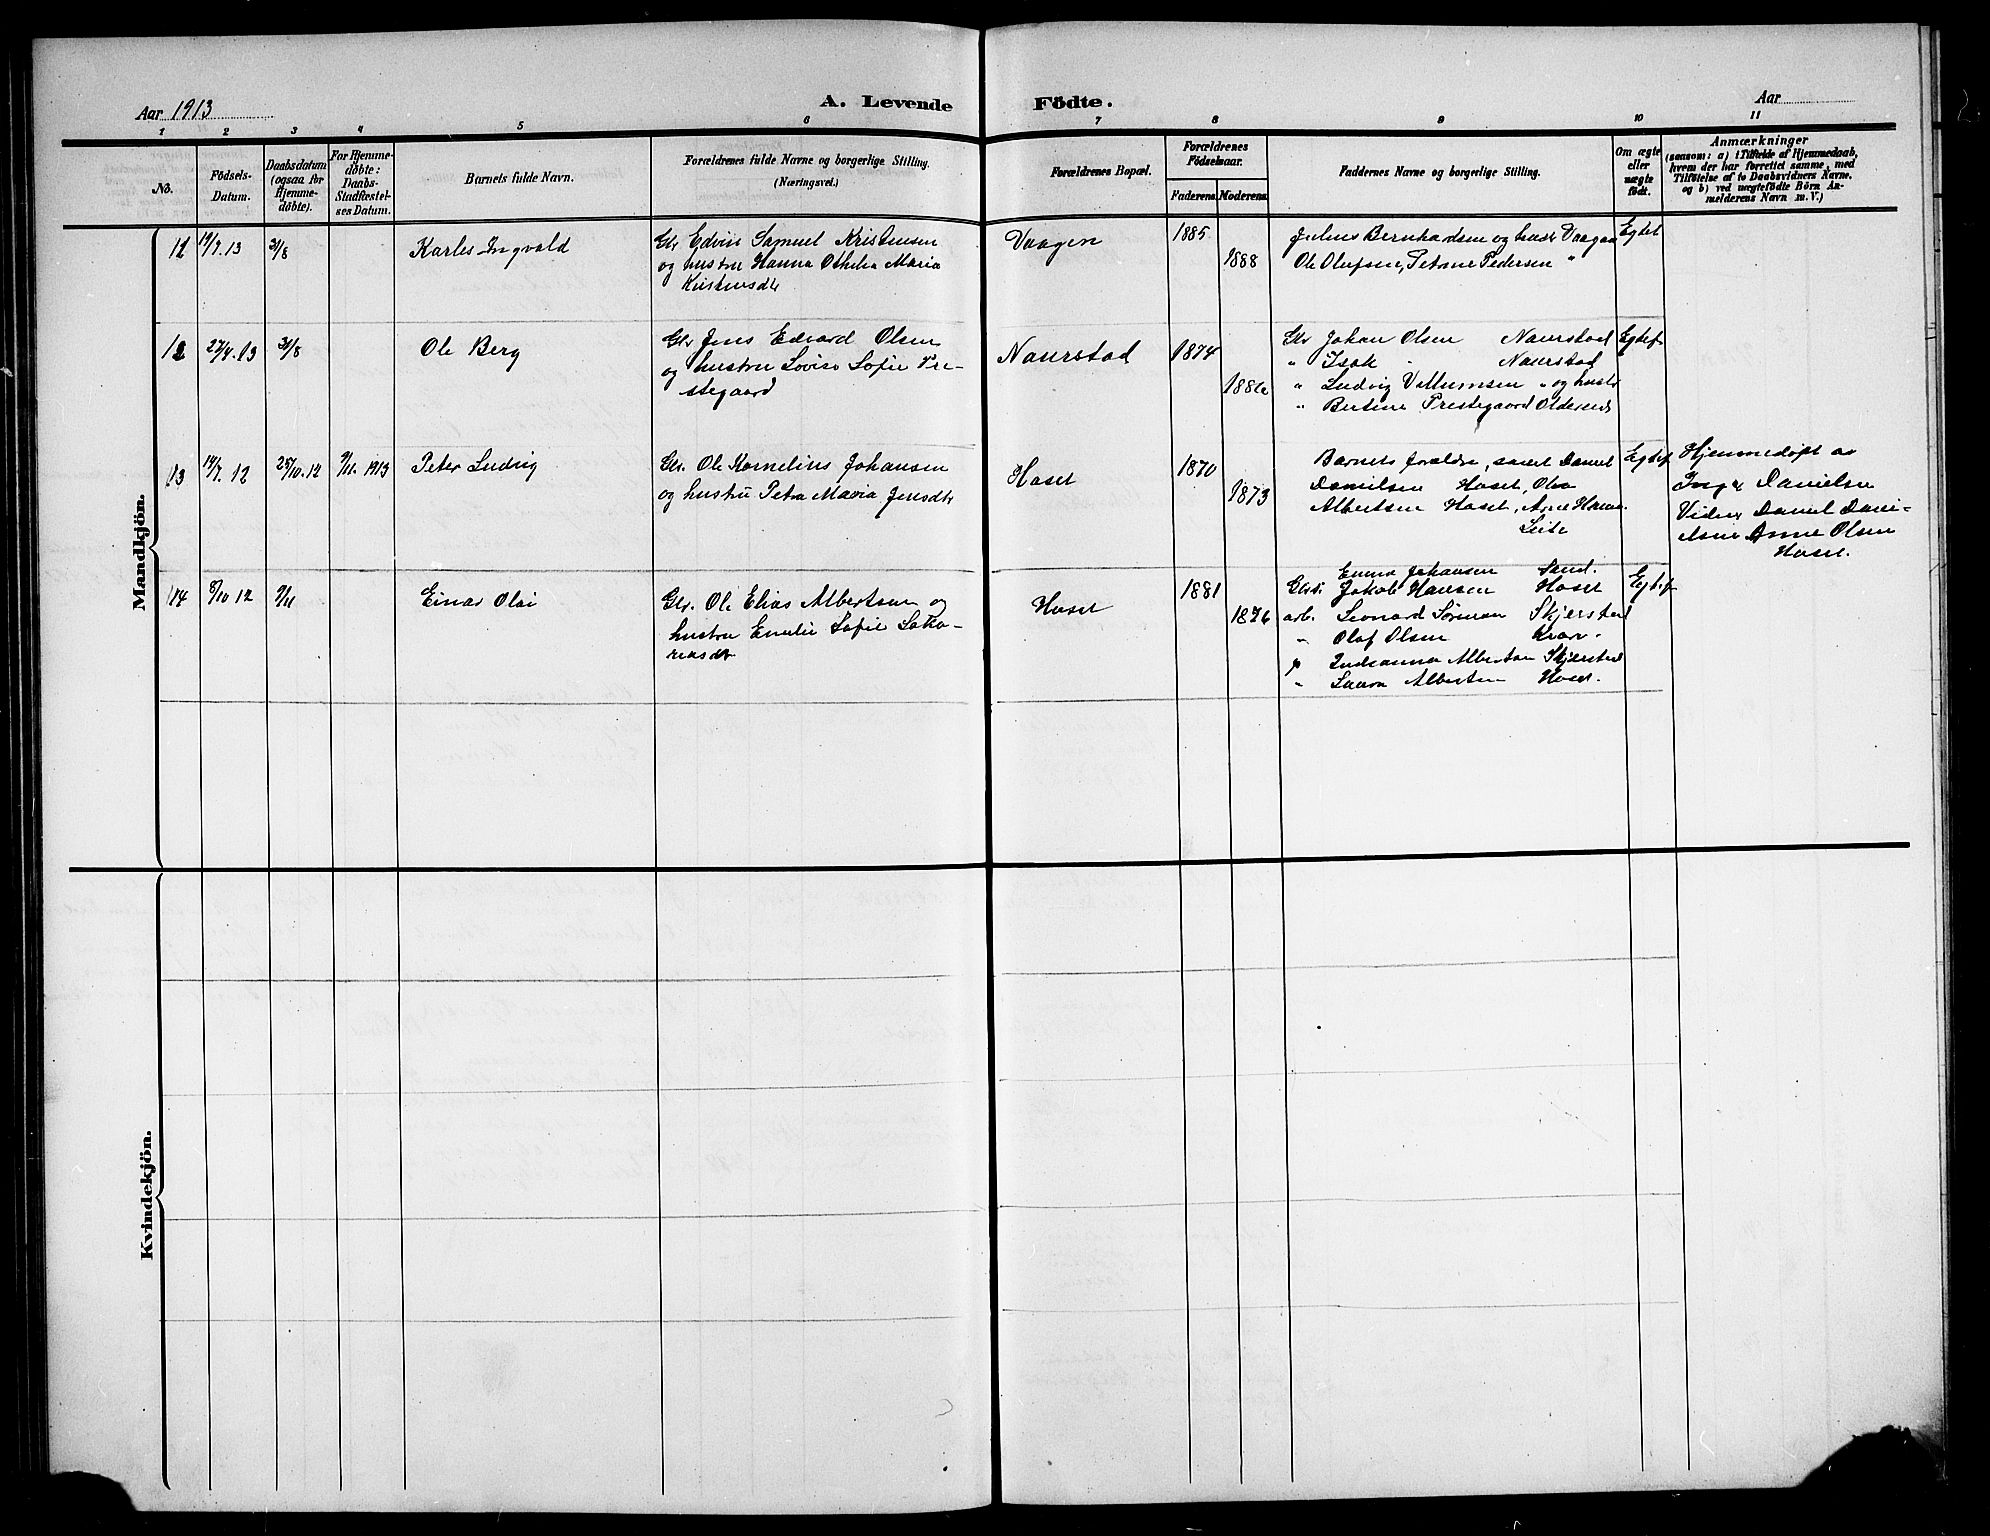 Aar 1913
A. Levende Födte.
Aar
1 2 3 4 5 6 7 8 9 10 11
No.
Födsels-
Datum.
Daabsdatum
(ogsaa for
Hjemme-
döbte).
For Hjemme-
döbte:
Daabs-
Stadfæstel-
ses Datum.
Barnets fulde Navn.
Forældrenes fulde Navne og borgerlige Stilling.
(Næringsvei.)
Forældrenes Bopæl.
Forældrenes
Födselsaar.
Faderens Moderens
Faddernes Navne og borgerlige Stilling.
Om ægte
eller
uægte
födt.
Anmærkninger
(saasom: a) i Tilfælde af Hjemmedaab,
hvem der har forrettet samme, med
Tilföielse af to Daabsvidners Navne,
og b) ved uægtefödte Börn An-
melderens Navn m. V.)
Mandkjön.
11 19/7.13 31/8 Karles Ingvald
Gbr Edvin Samuel Kristensen
og hustru Hanna Othilia Maria
Kristensdt
Vaagen 1885 1888
Julius Bernhardsen og hustr Vaagan
Ole Olufsen, Petrine Pedersen "
Egtef
12 27/4.13 31/8 Ole Berg
Gbr Jens Edvard Olsen
og hustru Lovise Sofie Pre-
stegaard
Naurstad 1874
Gbr Johan Olsen Naurstad
" Isak " Naurstad
" Ludvig Villumsen " og hustr
" Bertine Prestegaard
Egtef
13 14/7.12 25/10.12 9/11.1913 Peter Ludvig
Gbr. Ole Kornelius Johansen
og hustru Petra Maria Jensdtr
Hoset 1870 1873
Barnets foraldre, samt Daniel
Danielsen Hoset, Olea
Albertsen Hoset, Anne
Leite
Egtef
Hjemmedøpt av
Inger Danielsen
Vidner Daniel Dani-
elsen Anne Olsen
Hoset.
14 /10 12 9/11 Einar Olai
Gbr. Ole Elias Albertsen og
hustru Emelie Sofie Saka-
riasdtr
Hoset 1881 1876
Emma Johansen Sund.
Gbrs. Jakob Hansen Hoset
arb. Leonard Sørensen Skjerstad
" Olaf Olsen
p Albertsen Skjerstad
" Laura Albertsen Hoset.
Egtef
Kvindekjön.